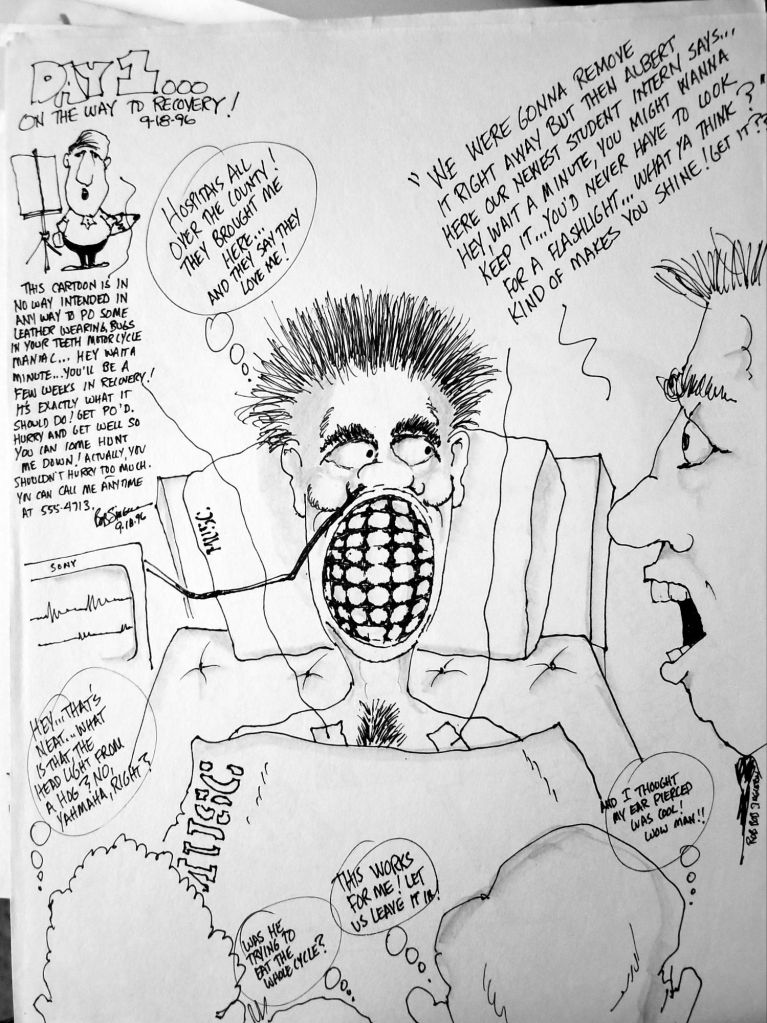 DAY 1...
ON THE WAY TO RECOVERY!
9-18-96
THIS CARTOON IS IN
NO WAY INTENDED IN
ANY WAY TO PO SOME
LEATHER WEARING, BUGS
IN YOUR TEETH MOTORCYCLE
MANIAC... HEY WAIT A
MINUTE... YOU'LL BE A
FEW WEEKS IN RECOVERY!
IT'S EXACTLY WHAT IT
SHOULD DO! GET PO'D.
HURRY AND GET WELL SO
YOU CAN COME HUNT
ME DOWN! ACTUALLY, YOU
SHOULDN'T HURRY TOO MUCH.
YOU CAN CALL ME ANYTIME
AT 555-4713.
9-18-96
HOSPITALS ALL
OVER THE COUNTY!
THEY BROUGHT ME
HERE...
AND THEY SAY THEY
LOVE ME!
"WE WERE GONNA REMOVE
IT RIGHT AWAY BUT THEN ALBERT
HERE OUR NEWEST STUDENT INTERN SAYS...
HEY, WAIT A MINUTE, YOU MIGHT WANNA
KEEP IT... YOU'D NEVER HAVE TO LOOK
FOR A FLASHLIGHT... WHAT YA THINK?"
KIND OF MAKES YOU SHINE! GET IT??
SONY
HEY... THAT'S
NEAT... WHAT
IS THAT, THE
HEAD LIGHT FROM
A HOG? NO,
YAHMAHA, RIGHT?
WAS HE
TRYING TO
EAT THE
WHOLE CYCLE?
THIS WORKS
FOR ME! LET
US LEAVE IT IN!
AND I THOUGHT
MY EAR PIERCED
WAS COOL!
WOW MAN!!